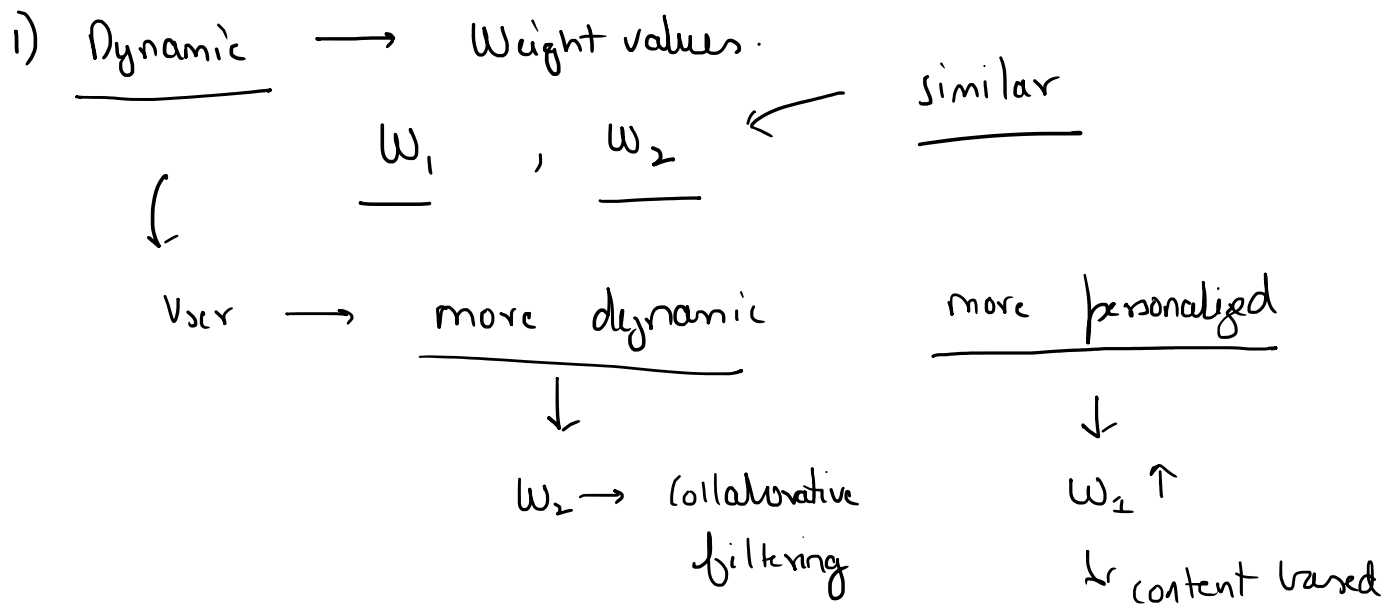 1) Dynamic → Weight values.
similar
W₁ , W₂ ←
User → more dynamic more personalized
↓ ↓
W₂ → Collaborative W₁ ↑
filtering ↳ content based